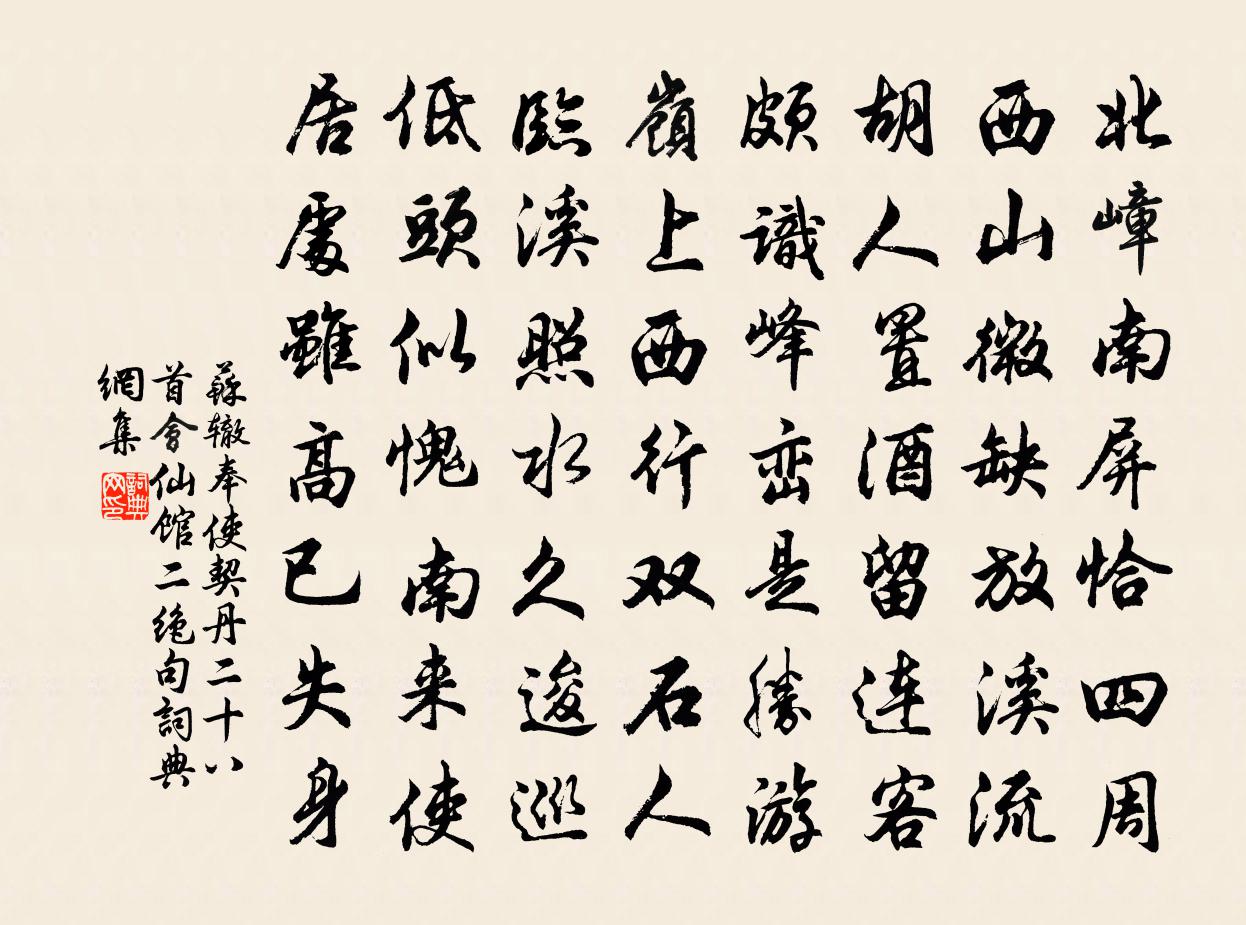 北嶂南屏恰四周
西山微缺放溪流
胡人置酒留连客
頗識峰峦是勝游
嶺上西行双石人
臨溪照水久逡巡
低頭似愧南来使
居處雖高已失身
蘇辙奉使契丹二十八
首會仙馆二绝句詞典
網集
詞典网印